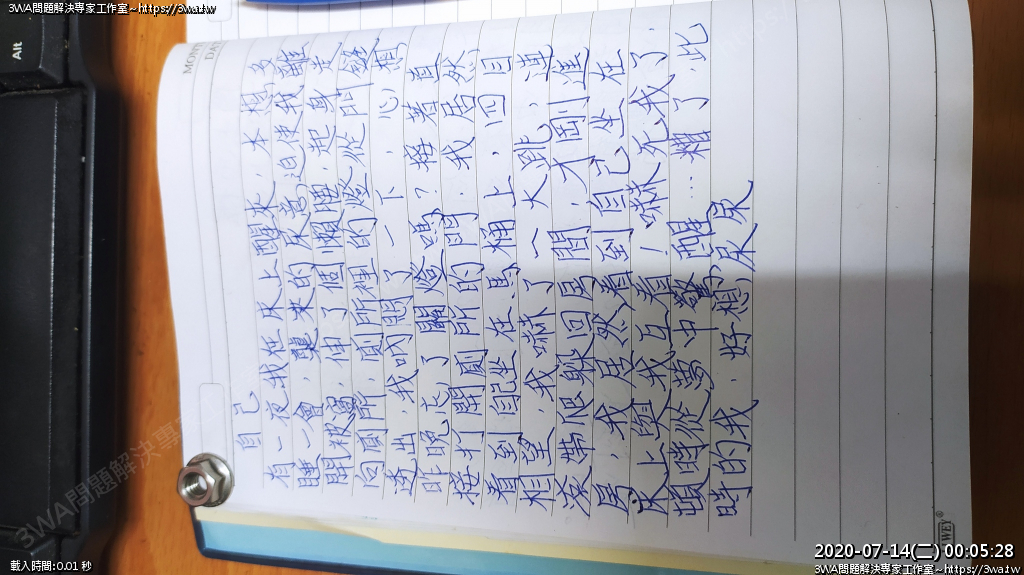 3WA問題解決專家工作室~https://3wa.tw
Alt
MON
DA
自己
有一夜我在床上醒來，本想多
睡一會，襲來的尿意迫使我離
開被窩，伸了個懶腰，起身走
向廁所，廁所裡的燈從門縫
透出，我了一下，心想
昨晚忘了關燈嗎？接著直
接打開廁所的門，我居然
看到自己坐在馬桶上，四目
相望，我嚇了一大跳，連
滾帶爬躲回房間，才剛進
房，我居然看到自己坐在
床上與我互看！嚇死我了，
頓時從夢中驚醒…糟了，此
時的我，好想尿尿
WEY®
載入時間:0.01 秒
2020-07-14(二) 00:05:28
3WA問題解決專家工作室~https://3wa.tw